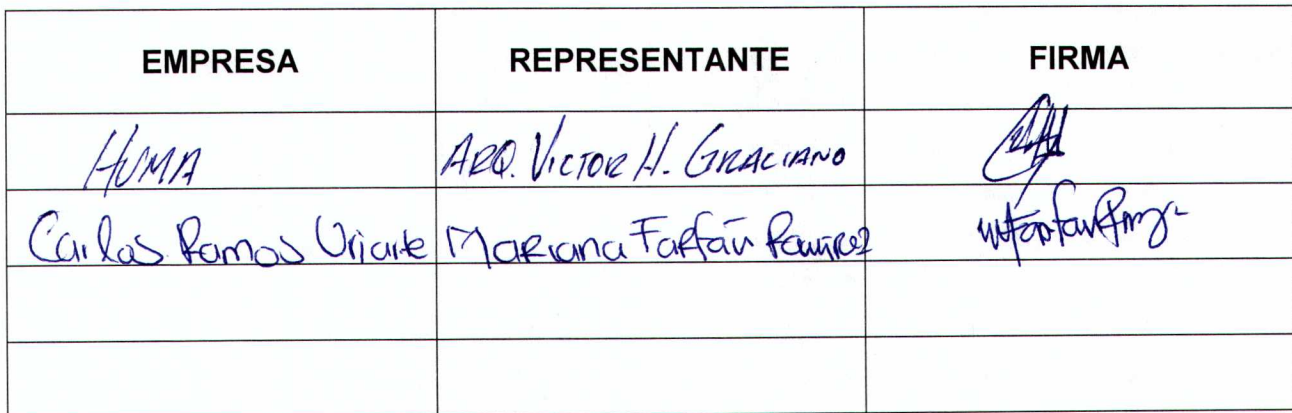 EMPRESA REPRESENTANTE FIRMA
HUMA ARQ. VICTOR H. GRACIANO
Carlos Ramos Uriarte Mariana Farfán Ramírez